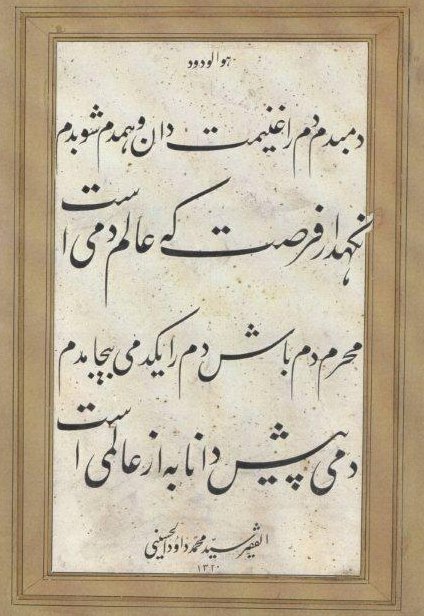 هوالودود
دمبدم دم را غنیمت دان و همدم شو بدم
نگهدار فرصت که عالم دمی است
محرم دم باش دم را یکدمی بیجا مدم
دمی پیش دانا به از عالمی است
الفقیر سید محمد داود الحسینی
۱۳۲۰